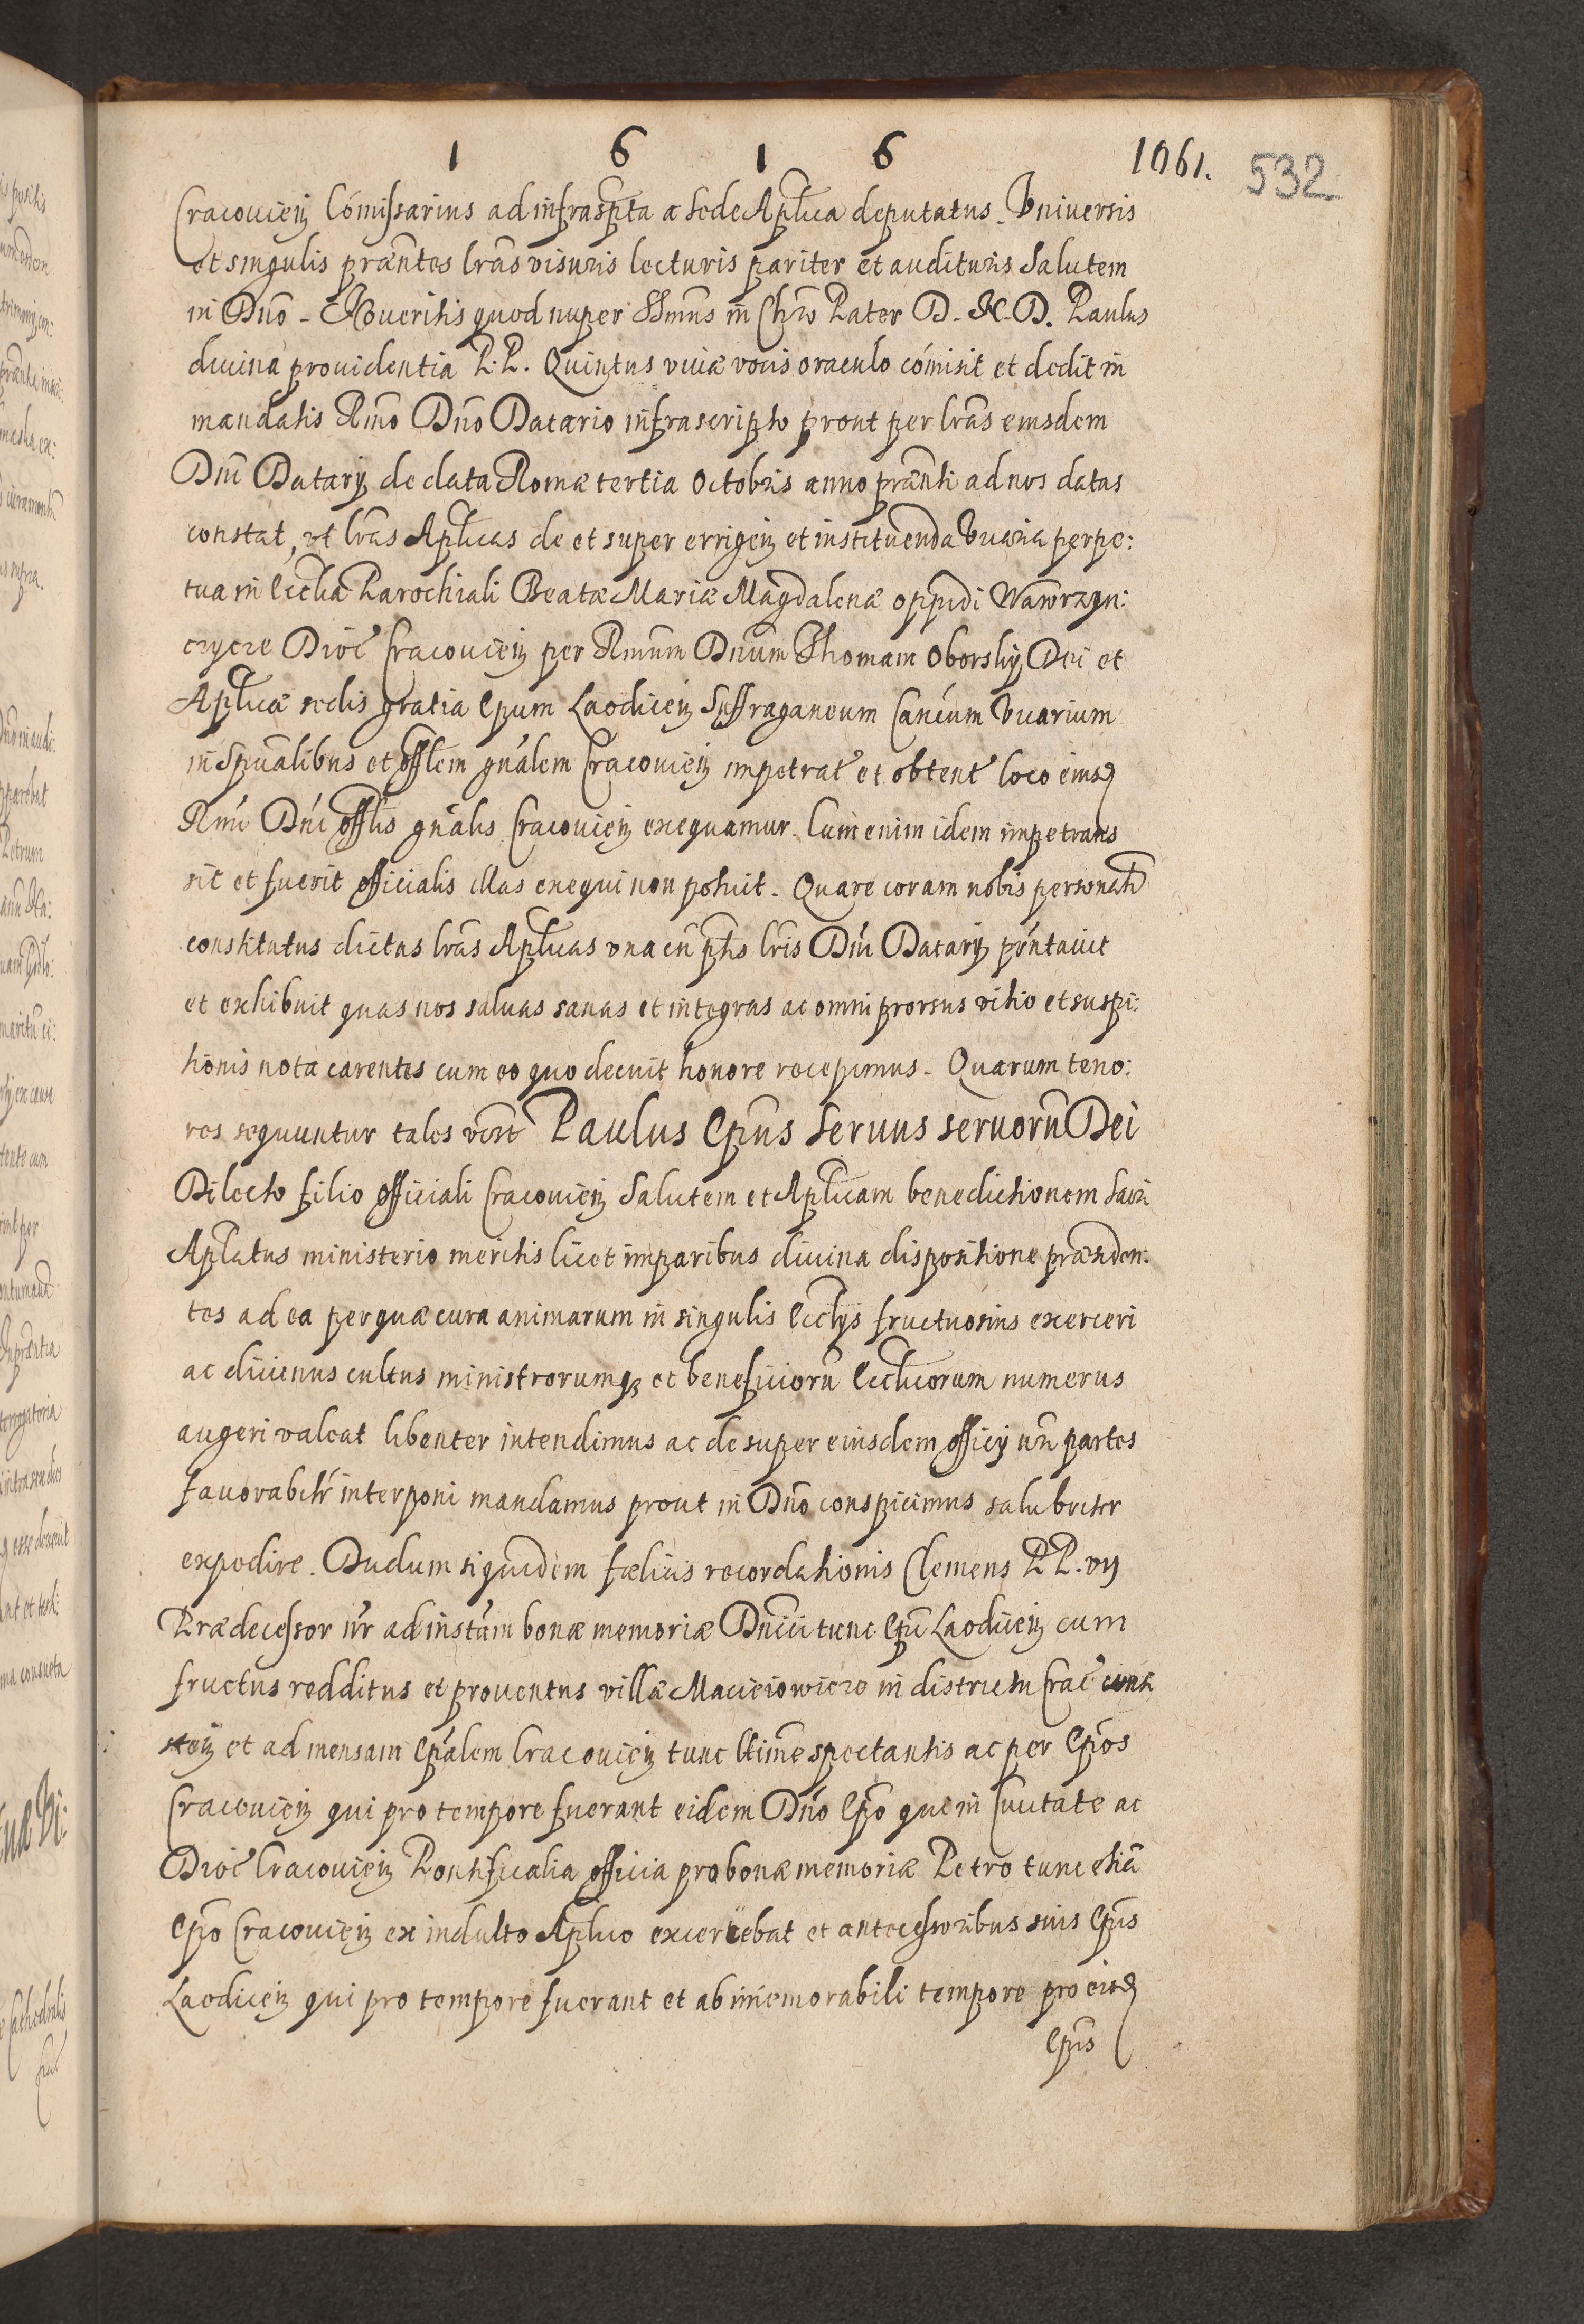 1 6 1 6
1061. 532
Cracovień Comissarius ad infraspta a Sede Aplica deputatus. Vniversis
et singulis præntes lras visuris lecturis pariter et audituris Salutem
in Dno - Noveritis quod nuper SSmns in Chro Pater D. N. D. Paulus
divina providentia P. P. Quintus vivæ vocis oraculo comisit et dedit in
mandatis Rmo Dno Datario infrascripto prout per lras eiusdem
Dni Datarij de data Romæ tertia Octobris anno prænti ad nos datas
constat, vt lras Aplicas de et super errigeń et instituenda Vicaria perpe:
tua in Ecclia Parochiali Beatæ Mariæ Magdalenæ oppidi Wawrzyn:
czycze Dioc Cracovień per Rmum Dnum Thomam Oborsky Dei et
Aplicæ sedis gratia Epum Laodiceń Suffraganeum Cancum Vicarium
in Spualibus et offlem gnalem Cracovień impetrat et obtent loco eiusd
Rmi Dni offlis gnalis Cracovień exequamur. Cum enim idem impetrans
sit et fuerit officialis illas exequi non potuit. Quare coram nobis personatr
constitutus dictas lras Aplicas vna cu ptis lris Dni Datarij pntavit
et exhibuit quas nos salvas sanas et integras ac omni prorsus vitio et suspi:
tionis nota carentes cum eo quo decuit honore recepimus. Quarum teno:
res sequuntur tales vert Paulus Epus Servus servoru Dei
Dilecto filio officiali Cracovień Salutem et Aplicam benedictionem Sacri
Aplatus ministerio meritis licet imparibus divina dispositione præsiden:
tes ad ea per quæ cura animarum in singulis Ecclijs fructuosius exerceri
ac divinus cultus ministrorumq et beneficioru Eccliicorum numerus
augeri valeat libenter intendimus ac desuper eiusdem officij nri partes
favorabilr interponi mandamus prout in Dno conspicimus salubriter
expedire. Dudum siquidem fælicis recordationis Clemens P P. vij
Prædecessor nr ad instam bonæ memoriæ Dnici tunc Epi Laodiceń cum
fructus redditus et proventus villæ Macieiowicze in districtu Crac
et ad mensam Epalem Cracovień tunc ltime spectantis ac per Epos
Cracovień qui pro tempore fuerant eidem Dno Epo qui in Civitate ac
Dioc Cracovień Pontificalia officia pro bonæ memoriæ Petro tunc etia
Epo Cracovień ex indulto Aplico exercebat et antecessoribus suis Epis
Laodiceń qui pro tempore fuerant et ab inmemorabili tempore pro eisd
Epis